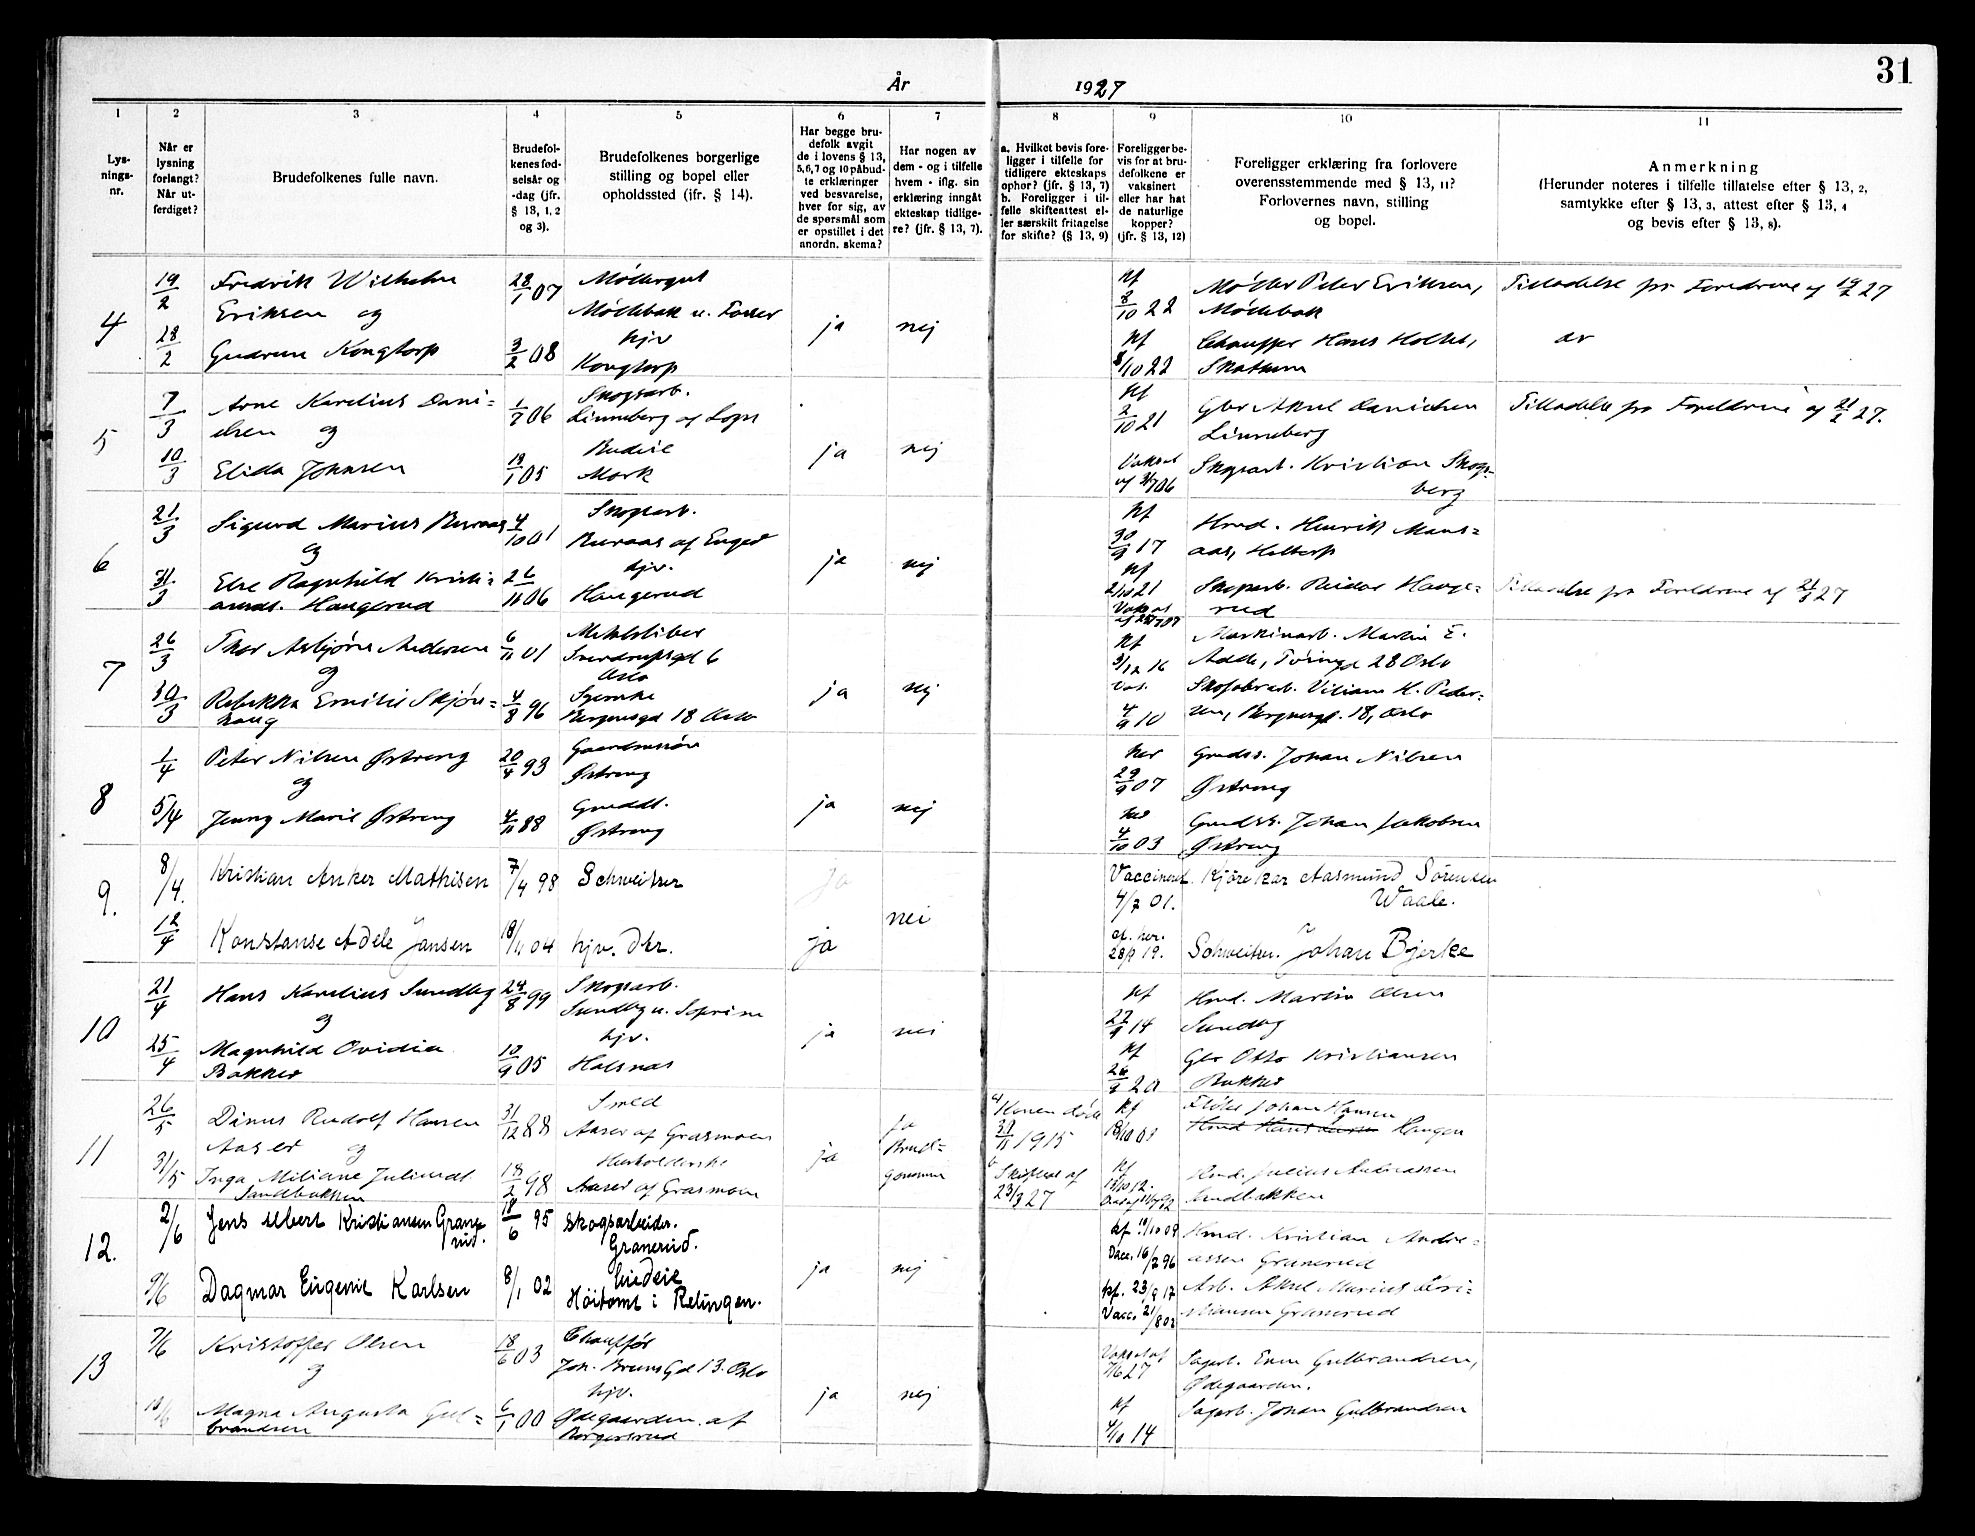 31
År 1927
1
2
3
4
5
6
7
8
9
10
11
Lys-
nings-
nr.
Når er
lysning
forlangt?
Når ut-
ferdiget?
Brudefolkenes fulle navn.
Brudefol-
kenes fød-
selsår og
-dag (jfr.
§ 13, 1, 2
og 3).
Brudefolkenes borgerlige
stilling og bopel eller
opholdssted (jfr. § 14).
Har begge bru-
defolk avgit
de i lovens § 13,
5,6,7 og 10 påbud-
te erklæringer
ved besvarelse,
hver for sig, av
de spørsmål som
er opstillet i det
anordn. skema?
Har nogen av
dem - og i tilfelle
hvem - iflg. sin
erklæring inngåt
ekteskap tidlige-
re? (jfr. § 13, 7).
a. Hvilket bevis fore-
ligger i tilfelle for
tidligere ekteskaps
ophør? (jfr. § 13, 7)
b. Foreligger i til-
felle skifteattest el-
ler særskilt fritagelse
for skifte? (§ 13, 9)
Foreligger be-
vis for at bru-
defolkene er
vaksinert
eller har hat
de naturlige
kopper?
(jfr. § 13, 12)
Foreligger erklæring fra forlovere
overensstemmende med § 13, 11?
Forlovernes navn, stilling
og bopel.
Anmerkning
(Herunder noteres i tilfelle tillatelse efter § 13, 2,
samtykke efter § 13, 3, attest efter § 13, 4
og bevis efter § 13, 8).
4
19/2
28/2
Fredrik Wilhelm
Eriksen og
Gudrun Kongtorp
28/1 07
3/2 08
Møllergut
Møllebak u. Fosser
hjv
Kongtorp
ja
nej
kf
8/10 22
kf
8/10 22
Møller Peter Eriksen,
Møllebak
Chauffør Hans
Tilladelse fra Foreldrene af 19/2 27
5
7/3
10/3
Arne Karelius Dani=
elsen og
Elida Johnsen
1/7 06
19/1 05
Skogsarb.
Linneberg af
Budeie
Mork
ja
nej
kf
2/10 21
Gbr Aksel Danielsen
Linneberg
Skogsarb. Kristian Skogs=
berg
Tilladelse fra Foreldrene af 21/2 27.
6
21/3
31/3
Sigurd Marius Buraas
og
Else Ragnhild Kristi=
ansdt. Haugerud
4/10 01
26/11 06
Skogsarb.
Buraas af Enger
hjv.
Haugerud
ja
nej
kf
30/9 17
kf
2/10 21
Hmd. Henrik
Skogsarb. Reidar Hauge=
rud
Tilladelse fra Foreldrene af 21/3 27
7
26/3
30/3
Thor Asbjørn Andersen
og
Rebekka Emilie Skjøn=
haug
6/11 01
4/8 96
Sverdrupsgd 6
Oslo
Syerske
Bergensgd 18 Oslo
ja
nej
kf
3/12 16
4/9 10
Maskinarb. Martin E.
28 Oslo
Viliam H. Peder=
sen, Bergensgd. 18, Oslo
8
1/4
5/4
Peter Nilsen Østreng
og
Jenny Marie Østreng
20/4 93
4/11 88
Østreng
Grddt.
Østreng
ja
nej
her
29/9 07
her
4/10 03
Grdss. Johan Nilsen
Østreng
Grdss. Johan Jakobsen
Østreng
9.
8/4.
12/4
Kristian Anker Mathisen
Konstanse Adele Jansen
7/4 98
18/11 04
Schweitser
hjv. Dtr.
ja
ja
nei
Vaccineret
4/7 01.
Kjørekar Aasmund Sørensen
Waale.
Schweitser. Johan Bjerke
10
21/4
25/4
Hans Karelius Sundby
og
Magnhild Ovidia
Bakker
24/8 99
10/9 05
Skogsarb.
Sundby u.
hjv.
Halsnas
ja
nei
kf
27/9 14
kf
26/9 20
Hmd. Martin Olsen
Sundby
Gbr Otto Kristiansen
Bakker
11
26/5
31/5
Dinus Rudolf Hansen
Aaser og
Inga Miliane Juliusdt.
Sandbakken
31/12 88
18/2 98
Smed
Aaser af Grasmoen
Husholderske
Aaser af Grasmoen
ja
Ja
Brud=
gommen
a Konen død
30/11 1915
b. Skifteat af
23/3 27
kf
18/10 03
kf
13/10 12.
Fløter Johan Hansen
Haugen
Hmd. Julius Andreassen
Sandbakken
12.
2/6
9/6
Jens Albert Kristiansen Grane=
rud.
Dagmar Eugenie Karlsen
18/6 95
8/1 02
Skogsarbeider.
Granerud.
budeie
Høitomt i Rælingen.
ja
nej
kf. 10/10 09
Vacc. 16/7 96
kf. 23/9 17
Vacc. 21/8 02
Hmd. Kristian Andre=
assen Granerud
Arb. Aksel Marius Kri=
stiansen Granerud
13
7/6
Kristoffer Olsen
og
Magna Augusta Gul=
brandsen
18/6 03
6/1 00
Chauffør
Joh. Bruns Gd 13. Oslo
hjv.
Ødegaarden af
Borgersrud
ja
nej
Vaksat af
7/6 27
kf
4/10 14
Sagarb. Gulbrandsen,
Ødegaarden.
Sagarb. Johan Gulbrandsen